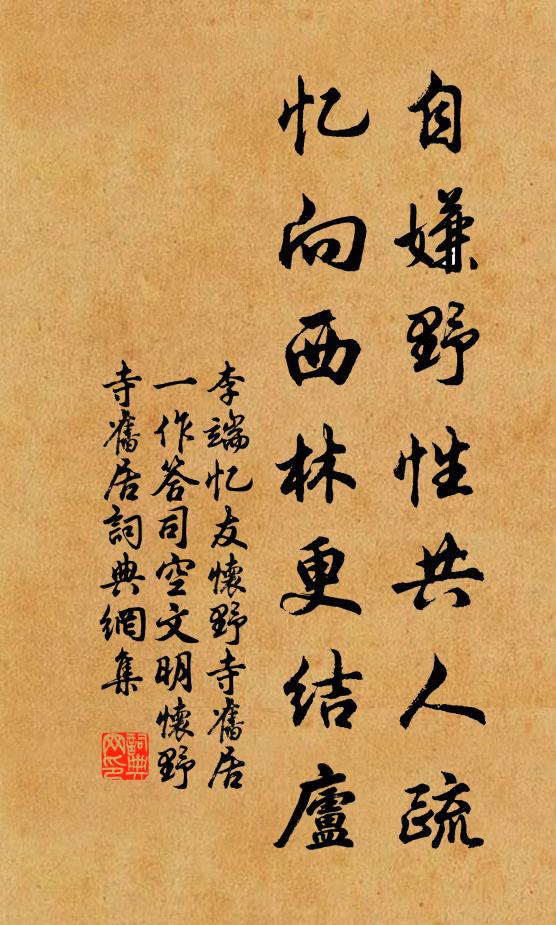 自嫌野性共人疏
忆向西林更结廬
李端忆友懷野寺舊居
一作答司空文明懷野
寺舊居詞典網集
詞典網印